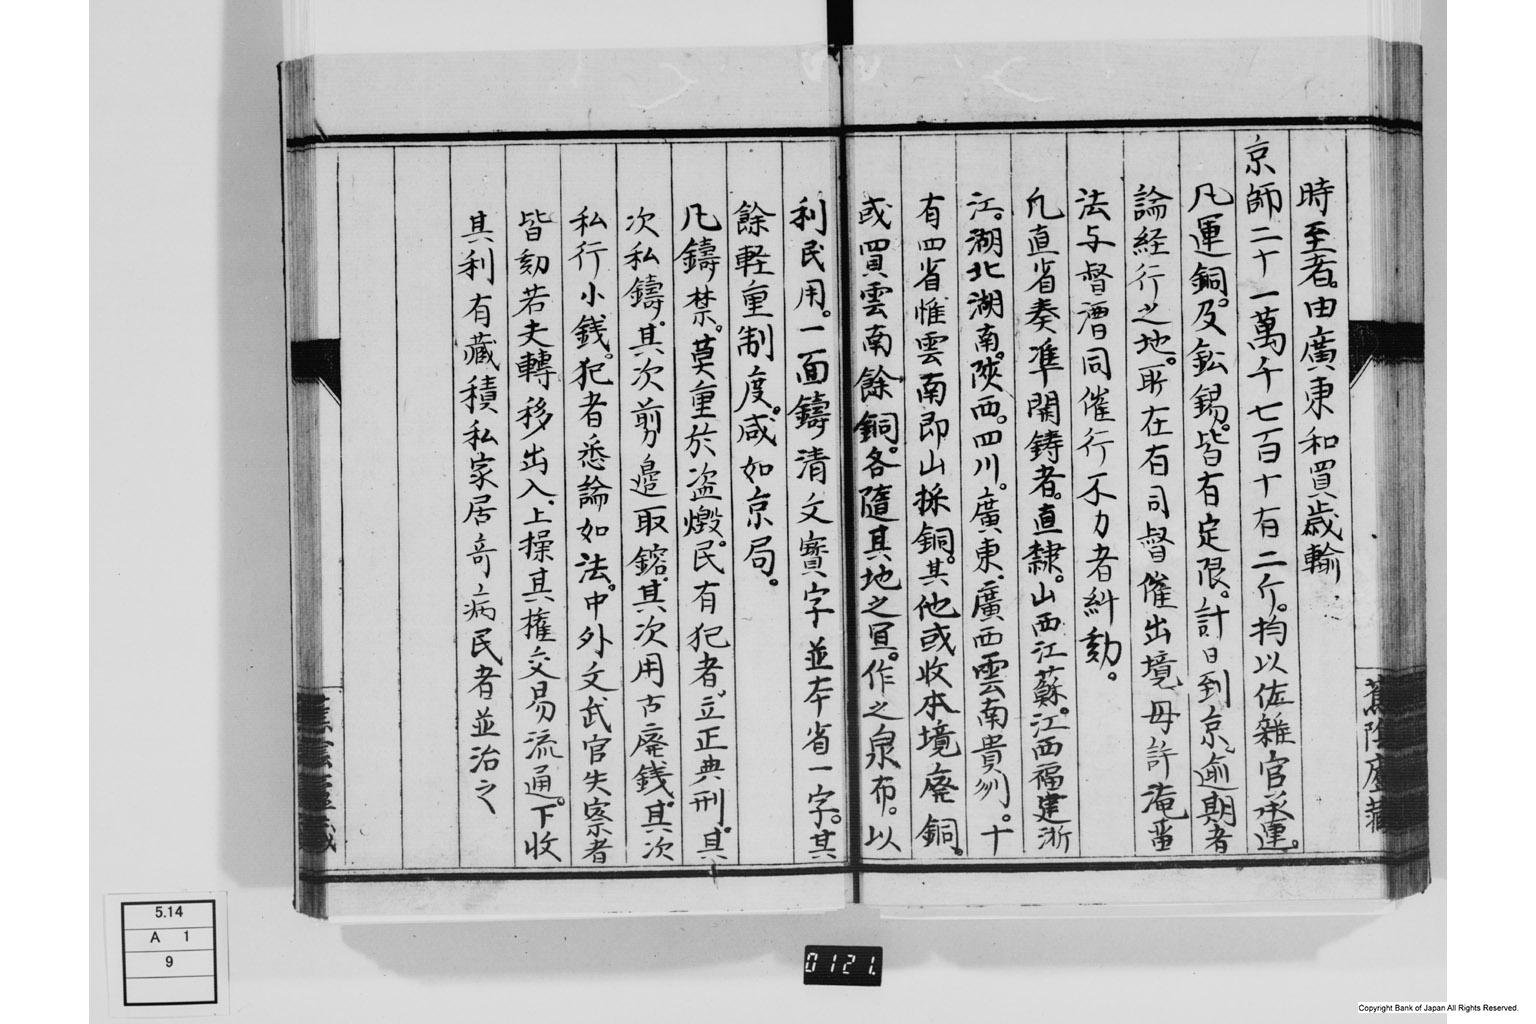 時至者。由廣東和買歲輸
京師二十一萬千七百十有二斤。均以佐雜官承運。
凡運銅。及鉛錫。皆有定限。計日到京。逾期者
論経行之地。所在有司督催出境。毋許淹畱
法与督漕同催行不力者糾劾。
凢直省奏準開鋳者。直隸。山西江蘇。江西福建浙
江。湖北湖南。陝西。四川。廣東。廣西雲南貴州。十
有四省惟雲南即山採銅。其他或收本境廃銅。
或買雲南餘銅。各隨其地之宜。作之泉布。以
利民用。一面鑄清文寳字並本省一字。其
餘軽重制度。咸如京局。
凡鑄禁。莫重於盗燬。民有犯者立正典刑。其
次私鑄。其次剪邉取鎔。其次用古廃銭。其次
私行小銭。犯者悉論如法。中外文武官失察者
皆劾若夫轉移出入。上操其權交易流通。下收
其利有藏積私家居竒病民者並治之
蕉陰廬藏
5.14
A 1
9
0121.
Copyright Bank of Japan All Rights Reserved.